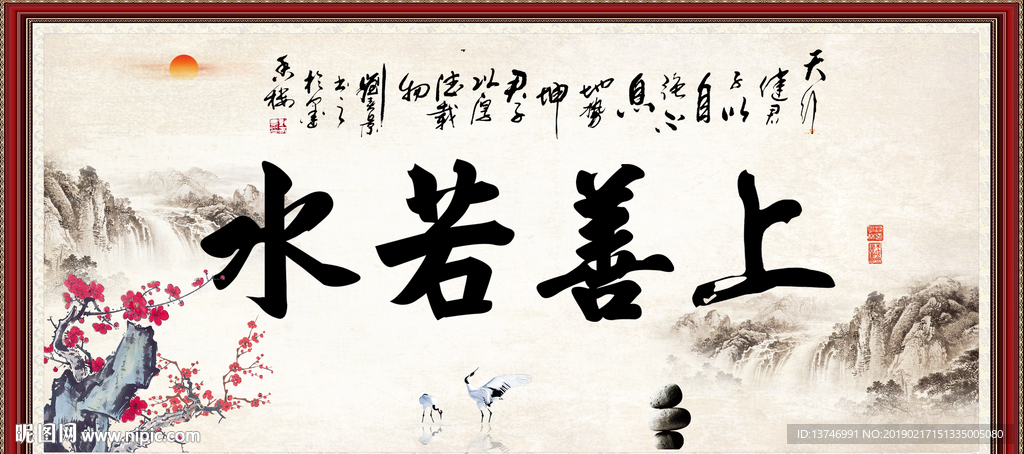 天行
健君
子以
自
強不
息
地勢
坤
君子
以厚
德載
物
书之
於墨
香楼
上善若水
昵图网 www.nipic.com
ID:13746991 NO:20190217151335005080